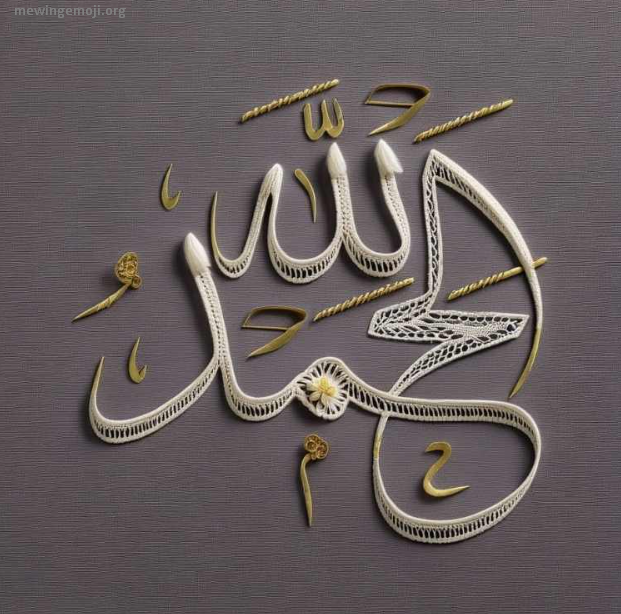 mewingemoji.org
الحمد لله